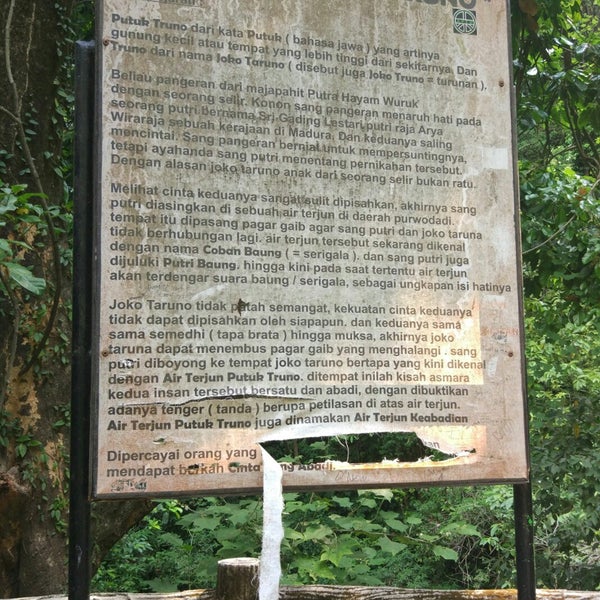 Putuk Truno dari kata Putuk ( bahasa jawa ) yang artinya
gunung kecil atau tempat yang lebih tinggi dari sekitarnya. Dan
Truno dari nama Joko Taruno ( disebut juga Joko Truno = turunan ).
Beliau pangeran dari majapahit Putra Hayam Wuruk
dengan seorang selir. Konon sang pangeran menaruh hati pada
seorang putri bernama Sri Gading Lestari putri raja Arya
Wiraraja sebuah kerajaan di Madura. Dan keduanya saling
mencintai. Sang pangeran berniat untuk mempersuntingnya,
tetapi ayahanda sang putri menentang pernikahan tersebut.
Dengan alasan joko taruno anak dari seorang selir bukan ratu.
Melihat cinta keduanya sangat sulit dipisahkan, akhirnya sang
putri diasingkan di sebuah air terjun di daerah purwodadi.
tempat itu dipasang pagar gaib agar sang putri dan joko taruna
tidak berhubungan lagi. air terjun tersebut sekarang dikenal
dengan nama Coban Baung ( = serigala ). dan sang putri juga
dijuluki Putri Baung. hingga kini pada saat tertentu air terjun
akan terdengar suara baung / serigala, sebagai ungkapan isi hatinya
Joko Taruno tidak patah semangat, kekuatan cinta keduanya
tidak dapat dipisahkan oleh siapapun. dan keduanya sama
sama semedhi ( tapa brata ) hingga muksa, akhirnya joko
taruna dapat menembus pagar gaib yang menghalangi . sang
putri diboyong ke tempat joko taruno bertapa yang kini dikenal
dengan Air Terjun Putuk Truno. ditempat inilah kisah asmara
kedua insan tersebut bersatu dan abadi, dengan dibuktikan
adanya tenger ( tanda ) berupa petilasan di atas air terjun.
Air Terjun Putuk Truno juga dinamakan Air Terjun Keabadian
Dipercayai orang yang
mendapat berkah Cinta Yang Abadi.